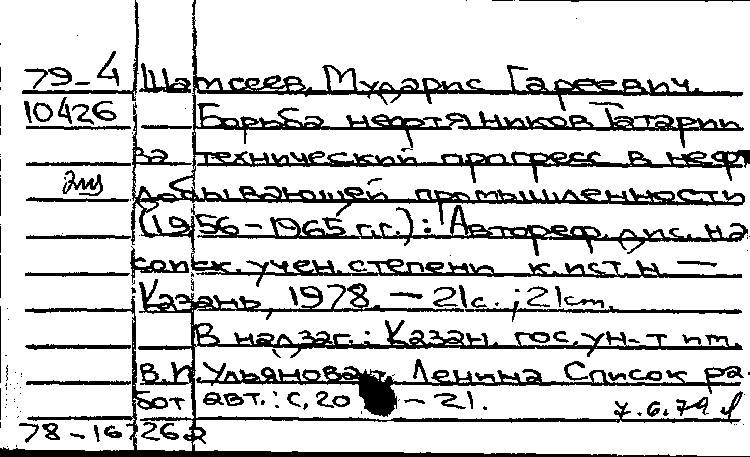 79-4 Шамсеев, Мударис Гареевич.
10426 Борьба нефтяников Татарии
за технический прогресс в нефте
добывающей промышленности
(1956-1965 г.г.): Автореф. дис. на
соиск. учен. степени к. ист. н. —
Казань, 1978. — 21с.; 21см.
В надзаг.: Казан. гос. ун-т им.
В.И. Ульянова Ленина Список ра-
бот авт.: с. 20 - 21.
7.6.79
78-16726